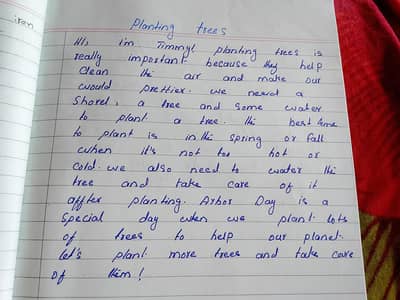 iren
Planting trees
Hi, i'm Timmy! planting trees is
really important because they help
clean the air and make our
would prettier. we need a
Shovel, a tree and some water
to plant a tree. the best time
to plant is in the spring or fall
when it's not too hot or
cold. we also need to water the
tree and take care of it
affter planting. Arbor Day is a
Special day when we plant lots
of trees to help our planet.
let's plant more trees and take care
of them!